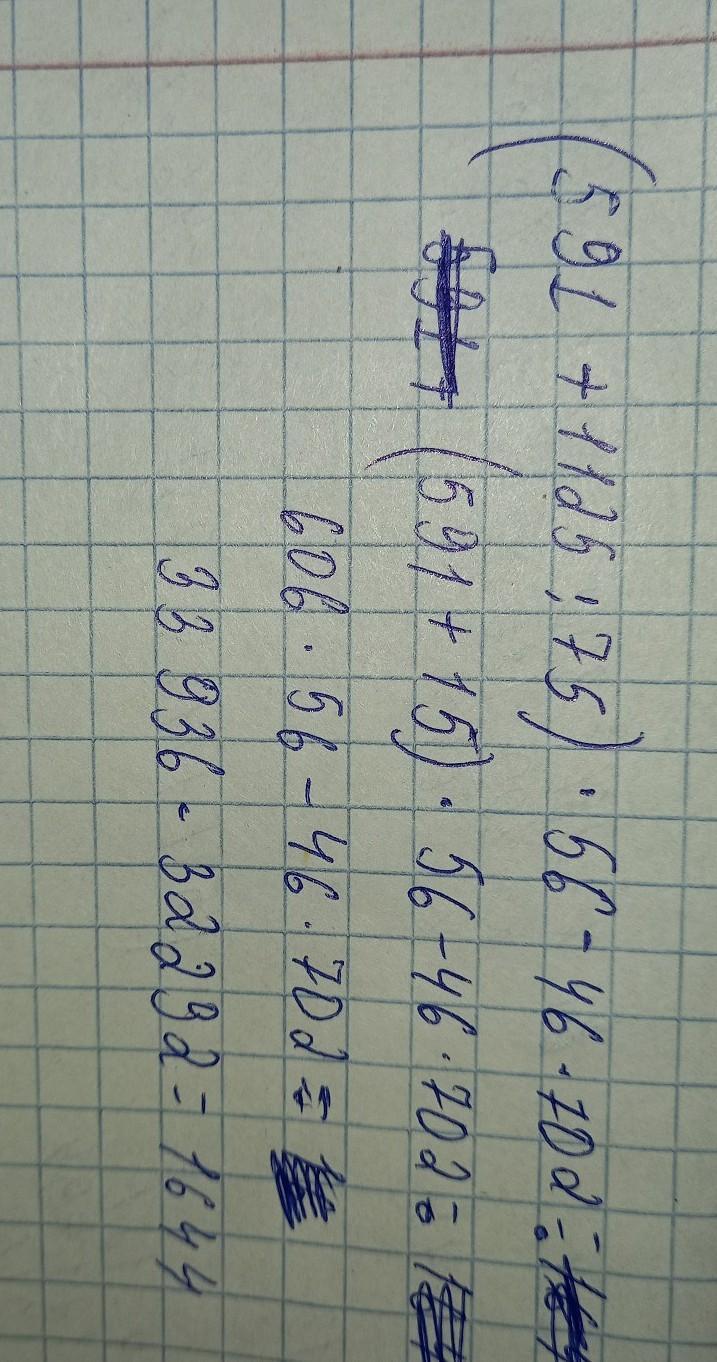 (591 + 1125 : 75) · 56 - 46 · 702 =
(591 + 15) · 56 - 46 · 702 =
606 · 56 - 46 · 702 =
33 936 - 32292 = 1644